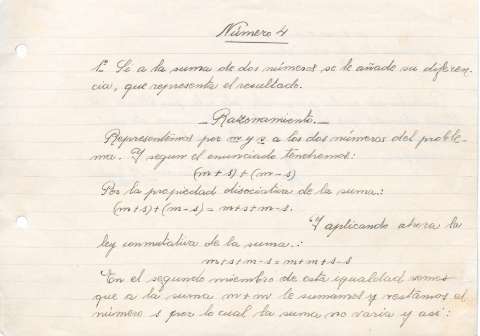 Número 4
1º Si a la suma de dos números se le añade su diferen-
cia, que representa el resultado.
- Razonamiento. -
Representemos por m y s a los dos números del proble-
ma. Y segun el enunciado tendremos:
(m + s) + (m - s)
Por la propiedad disociativa de la suma.:
(m + s) + (m - s) = m + s + m - s.
Y aplicando ahora la
ley conmutativa de la suma.:
m + s + m - s = m + m + s - s
En el segundo miembro de esta igualdad vemos
que a la suma m + m le sumamos y restamos el
número s por lo cual la suma no varia y asi: